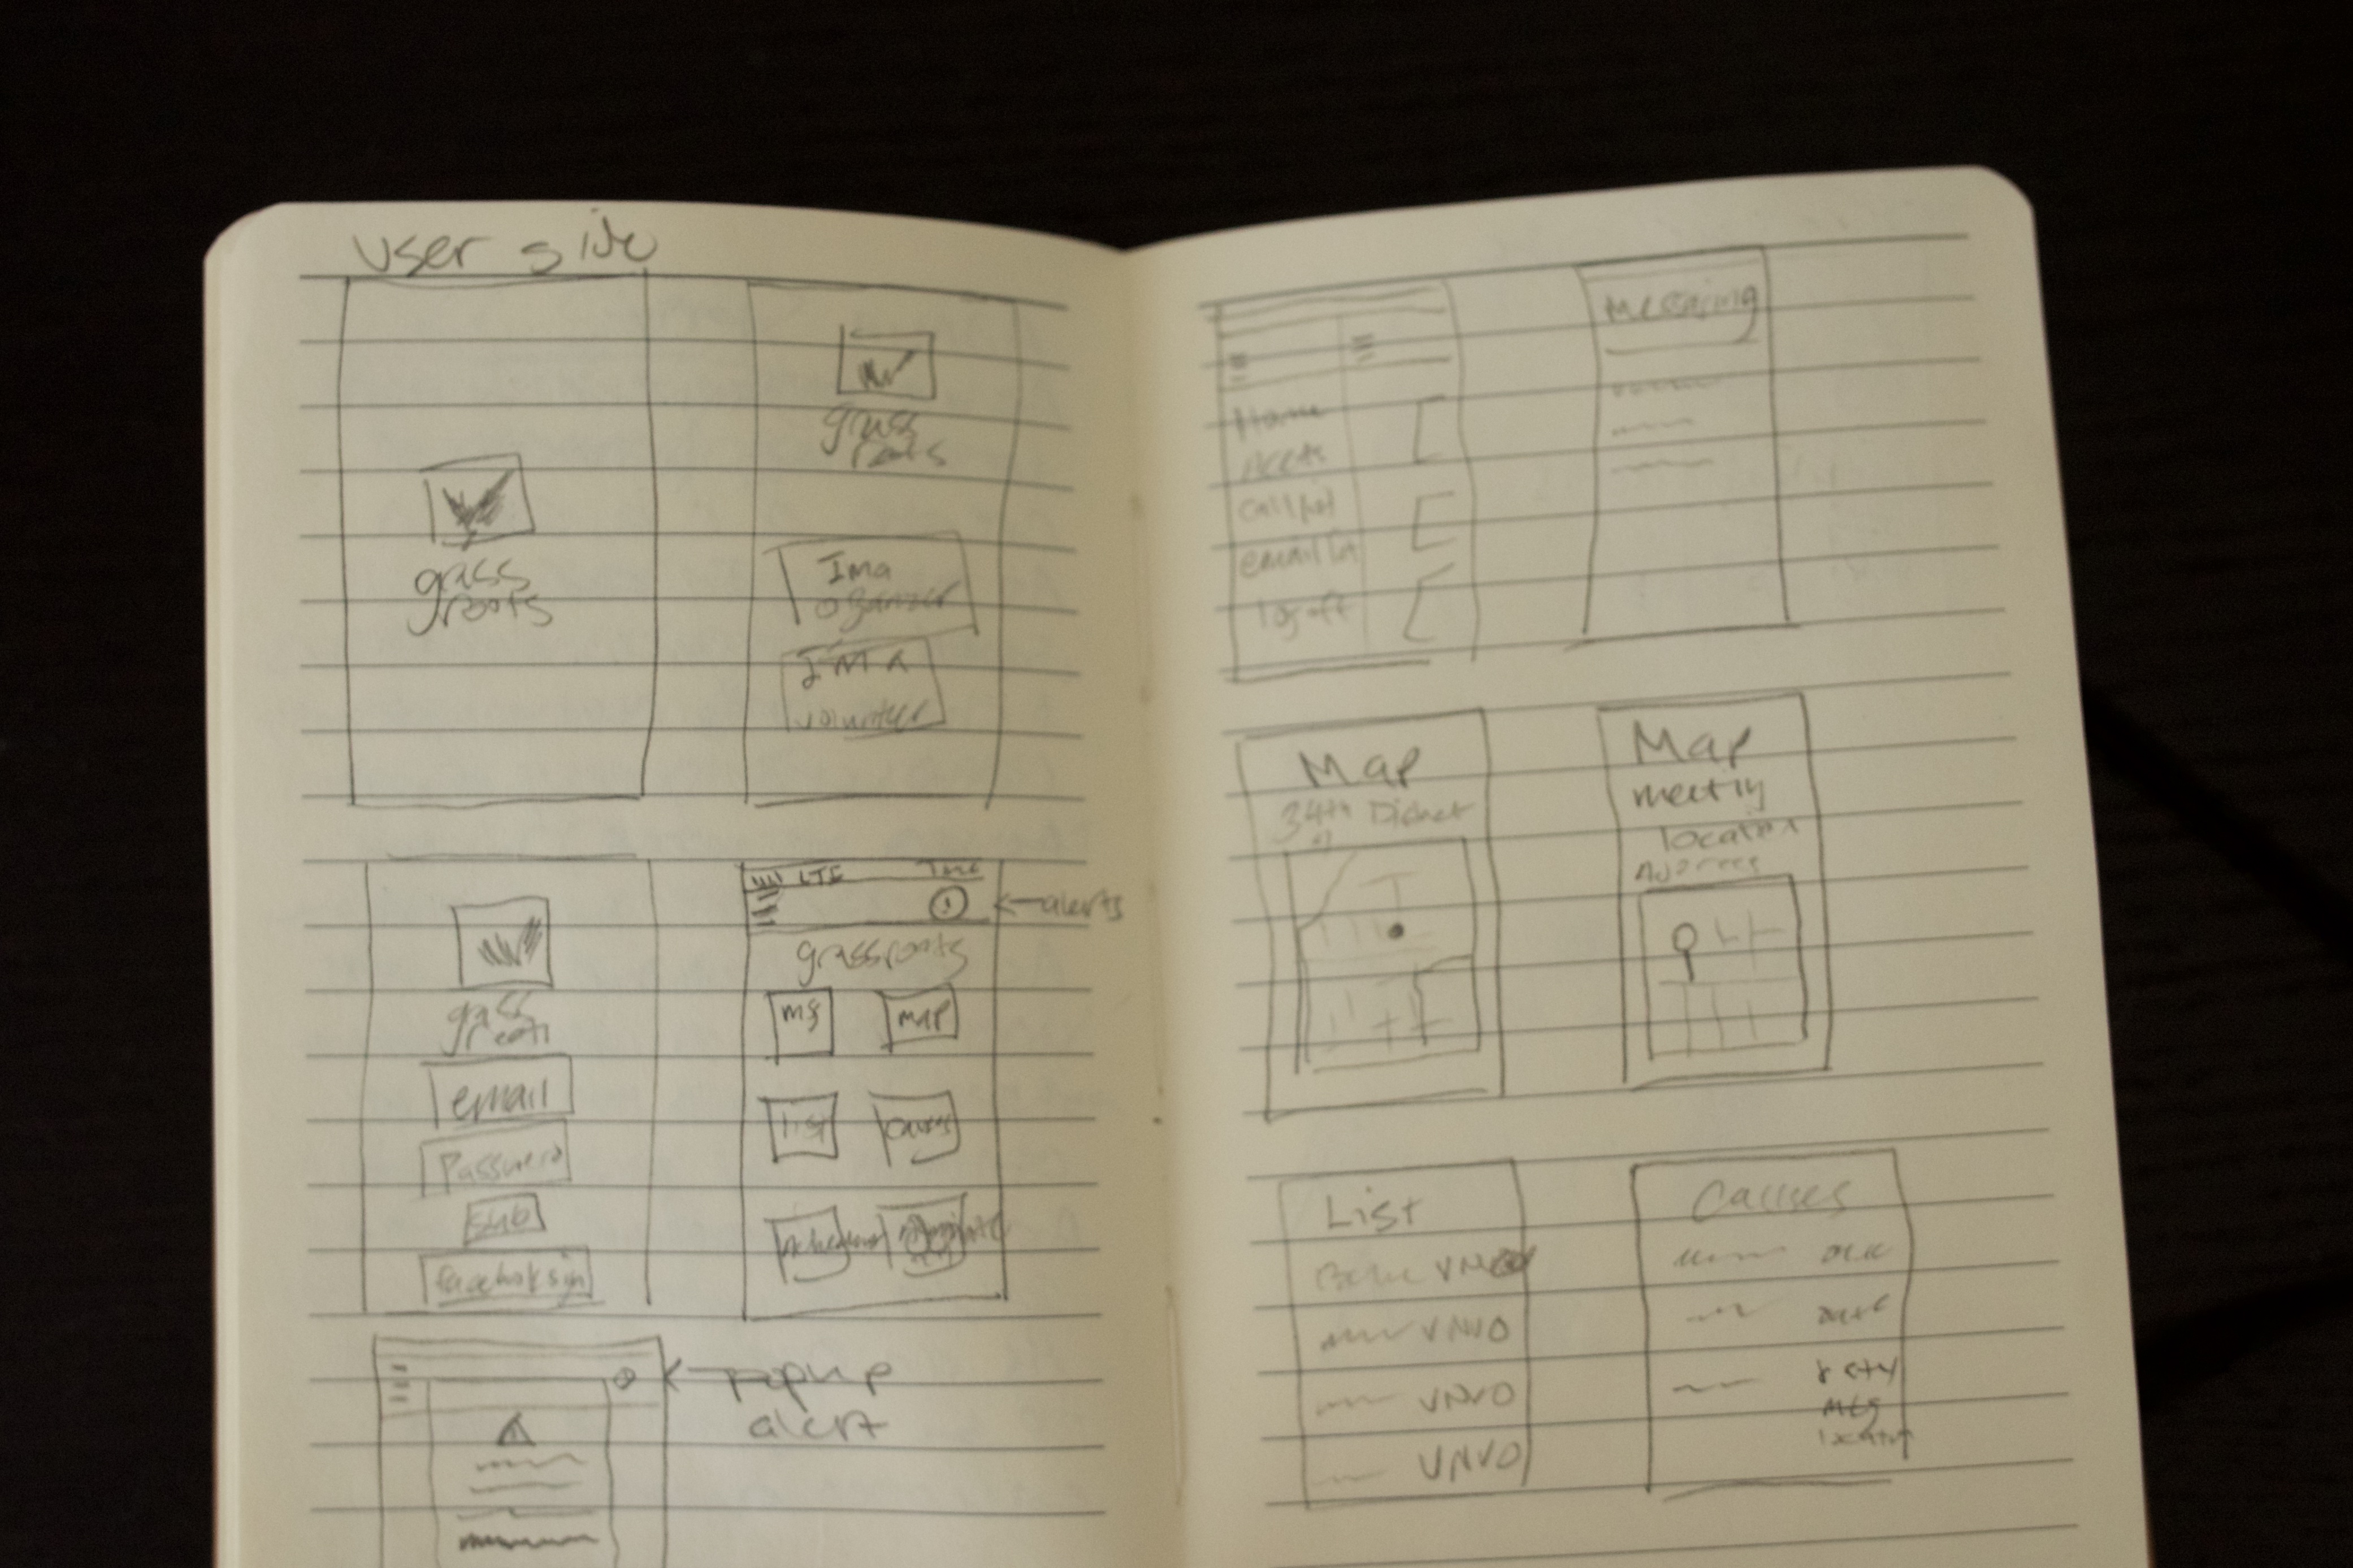 user side
grass
roots
grass
roots
Ima
organizer
I'M A
volunteer
grass
roots
email
Password
facebook sign
LTE Time
alerts
grassroots
msg map
list causes
popup
alert
Home
Alerts
email list
log off
Messaging
Map
34th District
Map
meeting
location
Address
List
VNVO
VNVO
VNVO
Causes
date